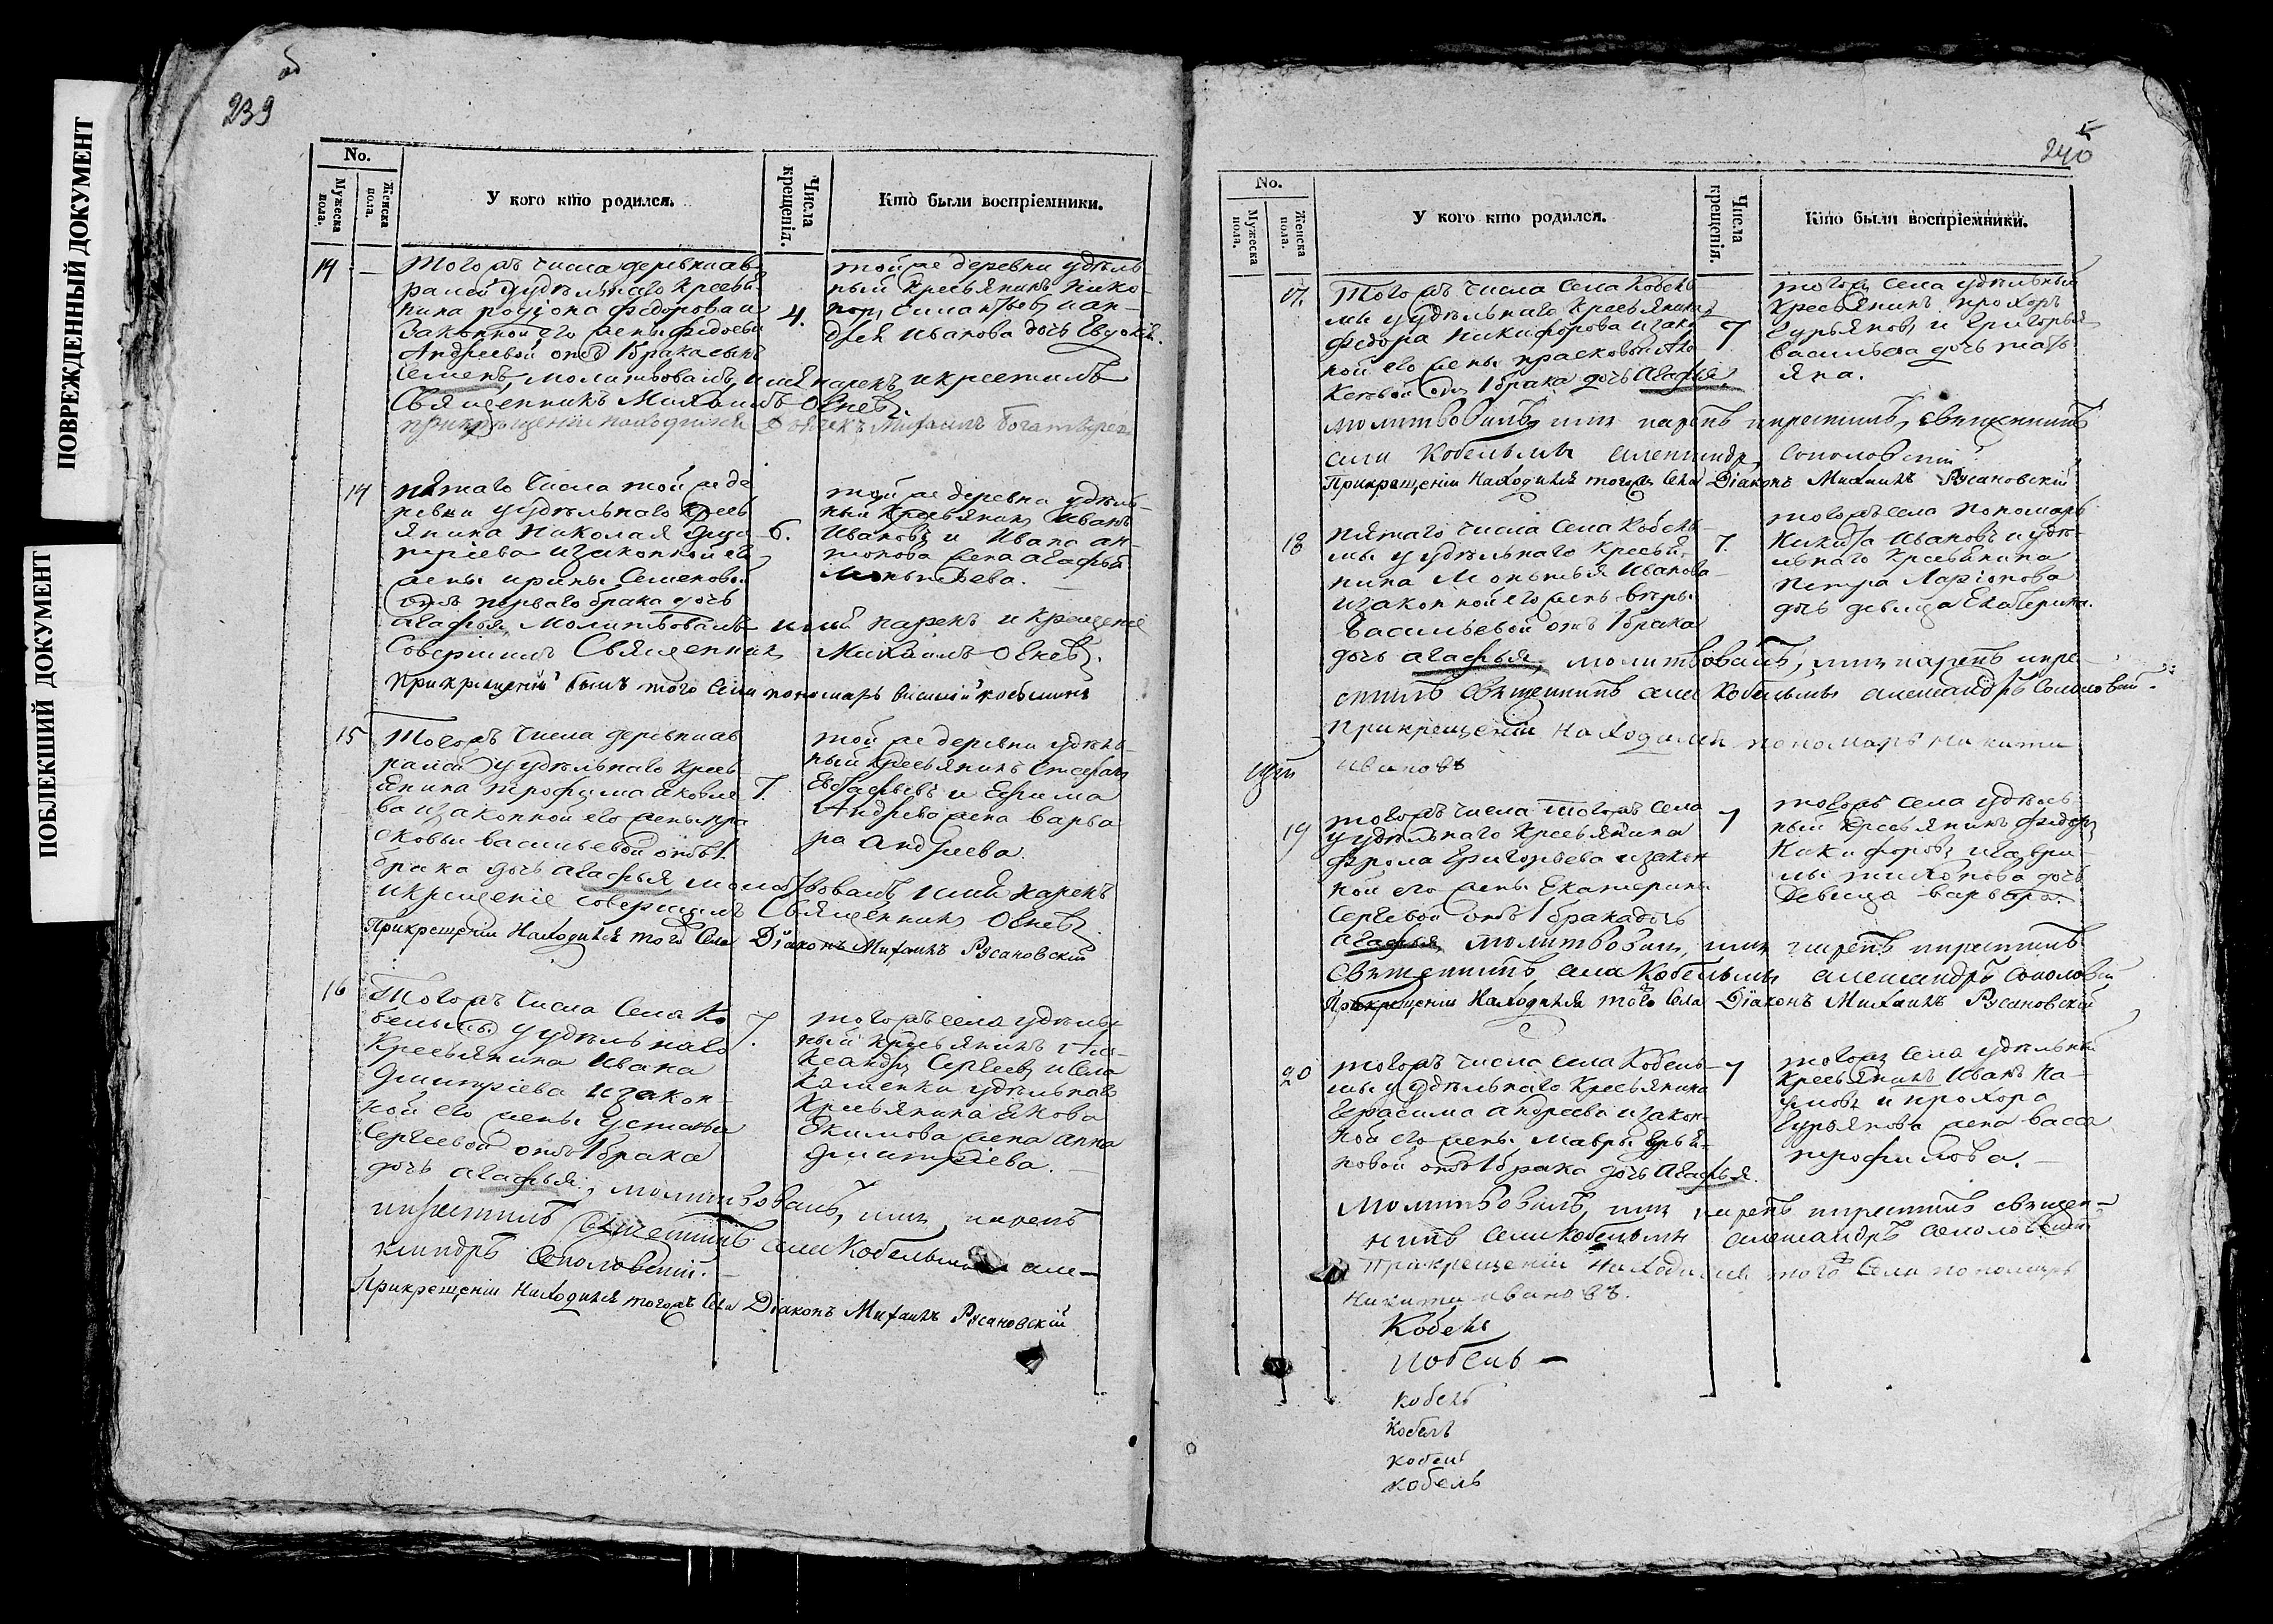 ПОВРЕЖДЕННЫЙ ДОКУМЕНТ
ПОБЛЕКШИЙ ДОКУМЕНТ
об
239
No.
Мужеска пола.
Женска пола.
У кого кто родился.
Числа крещенія.
Кто были воспріемники.
14 —
Тогожъ числа деревни Ав
рамей удѣльнаго кресья
нина Родіона Федорова и
законной его жены Федосьи
Андреевой отъ 1 брака сынъ
Семенъ, молитвовалъ, имя нарекъ и крестилъ
Священникъ Михаилъ Огневъ.
4.
тойже деревни удѣль
ный кресьянинъ Ники
форъ Силантьевъ и Ан
дрея Иванова дочь Евдокія.
14
пятаго числа тойже де
ревни у удѣльнаго кресь
янина Николая Дми
тріева и законной его
жены Ирины Семеновой
отъ перваго брака дочь
Агафья, молитвовалъ имя нарекъ и крещеніе
совершилъ Священникъ Михаилъ Огневъ.
При крещеніи былъ того села пономарь
6.
тойже деревни удѣль
ный кресьянинъ Иванъ
Ивановъ и Ивана Ан
тонова жена Агафья
15
Тогожъ числа деревни Ав
рамей у удѣльнаго кресь
янина Трофима Яковле
ва и законной его жены Пра
сковьи Васильевой отъ 1.
брака дочь Агафья молитвовалъ имя нарекъ
и крещеніе совершилъ Священникъ Огневъ.
При крещеніи находился того села Діаконъ Михаилъ Русановскій
7.
тойже деревни удѣль
ный кресьянинъ Стефанъ
Евстафьевъ и Ефима
Андреева жена Варва
ра Андреева.
16
Тогожъ числа села Ко
бельмы у удѣльнаго
кресьянина Ивана
Дмитріева и закон
ной его жены Устиньи
Сергеевой отъ 1 брака
дочь Агафья, молитвовалъ, имя нарекъ
и крестилъ Священникъ села Кобельмы але—
ксандръ Соколовскій.
При крещеніи находился тогожъ села Діаконъ Михаилъ Русановскій
7.
тогожъ села удѣль
ный кресьянинъ Але
ксандръ Сергеевъ и села
Каменки удѣльнаго
кресьянина Якова
Екимова жена Анна
Дмитріева.
240
No.
Мужеска пола.
Женска пола.
У кого кто родился.
Числа крещенія.
Кто были воспріемники.
17.
Тогожъ числа села Кобель
мы у удѣльнаго кресьянина
Федора Никифорова и закон
ной его жены Прасковьи Яко
влевой отъ 1 брака дочь Агафья,
молитвовалъ, имя нарекъ и крестилъ, священникъ
села Кобельмы александръ Соколовскій
При крещеніи находился тогожъ села Діаконъ Михаилъ Русановскій
7
тогожъ села удѣльный
кресьянинъ Прохоръ
Гурьяновъ и Григорья
Васильева дочь Тать
яна.
18
пятаго числа села Кобель
мы у удѣльнаго кресья
нина Иванова
и законной его жены Вѣры
Васильевой отъ 1 брака
дочь Агафья, молитвовалъ, имя нарекъ и кре
стилъ священникъ села Кобельмы александръ Соколовскій.
При крещеніи находился пономарь Никита
Ивановъ
7.
тогожъ села пономарь
Никита Ивановъ и удѣ
льнаго кресьянина
Петра Ларіонова
дочь девица Екатерина.
19
тогожъ числа тогожъ села
у удѣльнаго кресьянина
Фрола Григорьева и закон
ной его жены Екатерины
Сергевой отъ 1 брака дочь
Агафья, молитвовалъ, имя нарекъ и крестилъ
Священникъ села Кобельмы александръ Соколовскій
При крещеніи находился того села Діаконъ Михаилъ Русановскій
7
тогожъ села удѣль
ный кресьянинъ Федоръ
Никифоровъ и Гаври
лы Тихонова дочь
девица Варвара.
20
тогожъ числа села Кобель
мы у удѣльнаго кресьянина
Герасима Андреева и закон
ной его жены Мавры Гурья
новой отъ 1 брака дочь Агафья.
Молитвовалъ, имя нарекъ и крестилъ священ—
никъ села Кобельмы александръ Соколовскій
При крещеніи находился того села пономарь
Никита Ивановъ.
7
тогожъ села удѣльный
кресьянинъ Иванъ На
умовъ и Прохора
Гурьянова жена Васса
Трофимова.
Кобель
Кобель —
кобель
Кобель
кобель
кобель